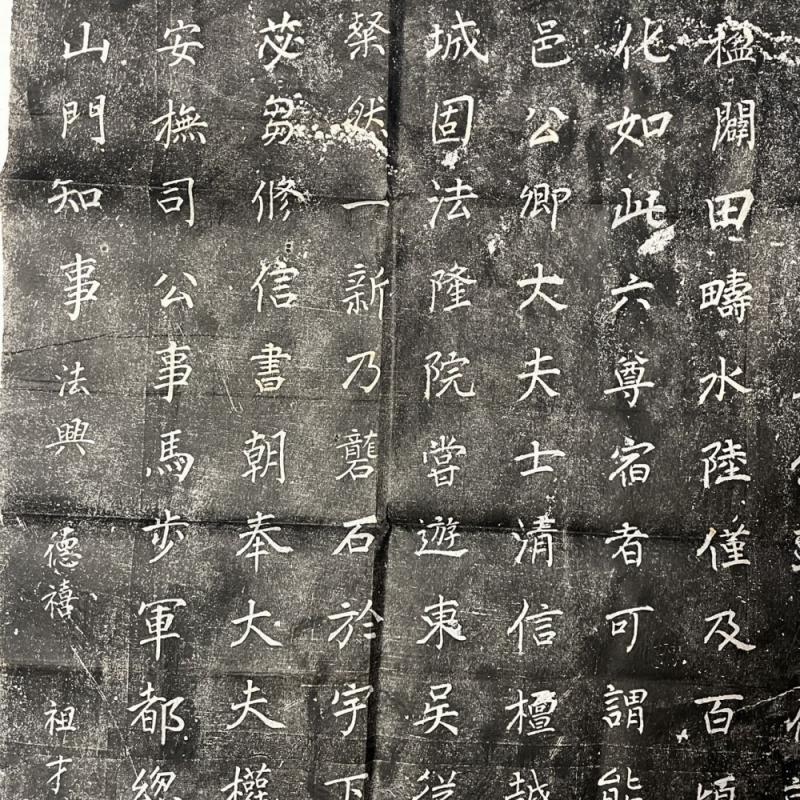 楹闢田疇水陸僅及百頃
化如此六尊宿者可謂能
邑公卿大夫士清信檀越
城固法隆院嘗遊東吴從
粲然一新乃礲石於宇下
苾芻修信書朝奉大夫權
安撫司公事馬步軍都緫
山門知事法興 德禧 祖才